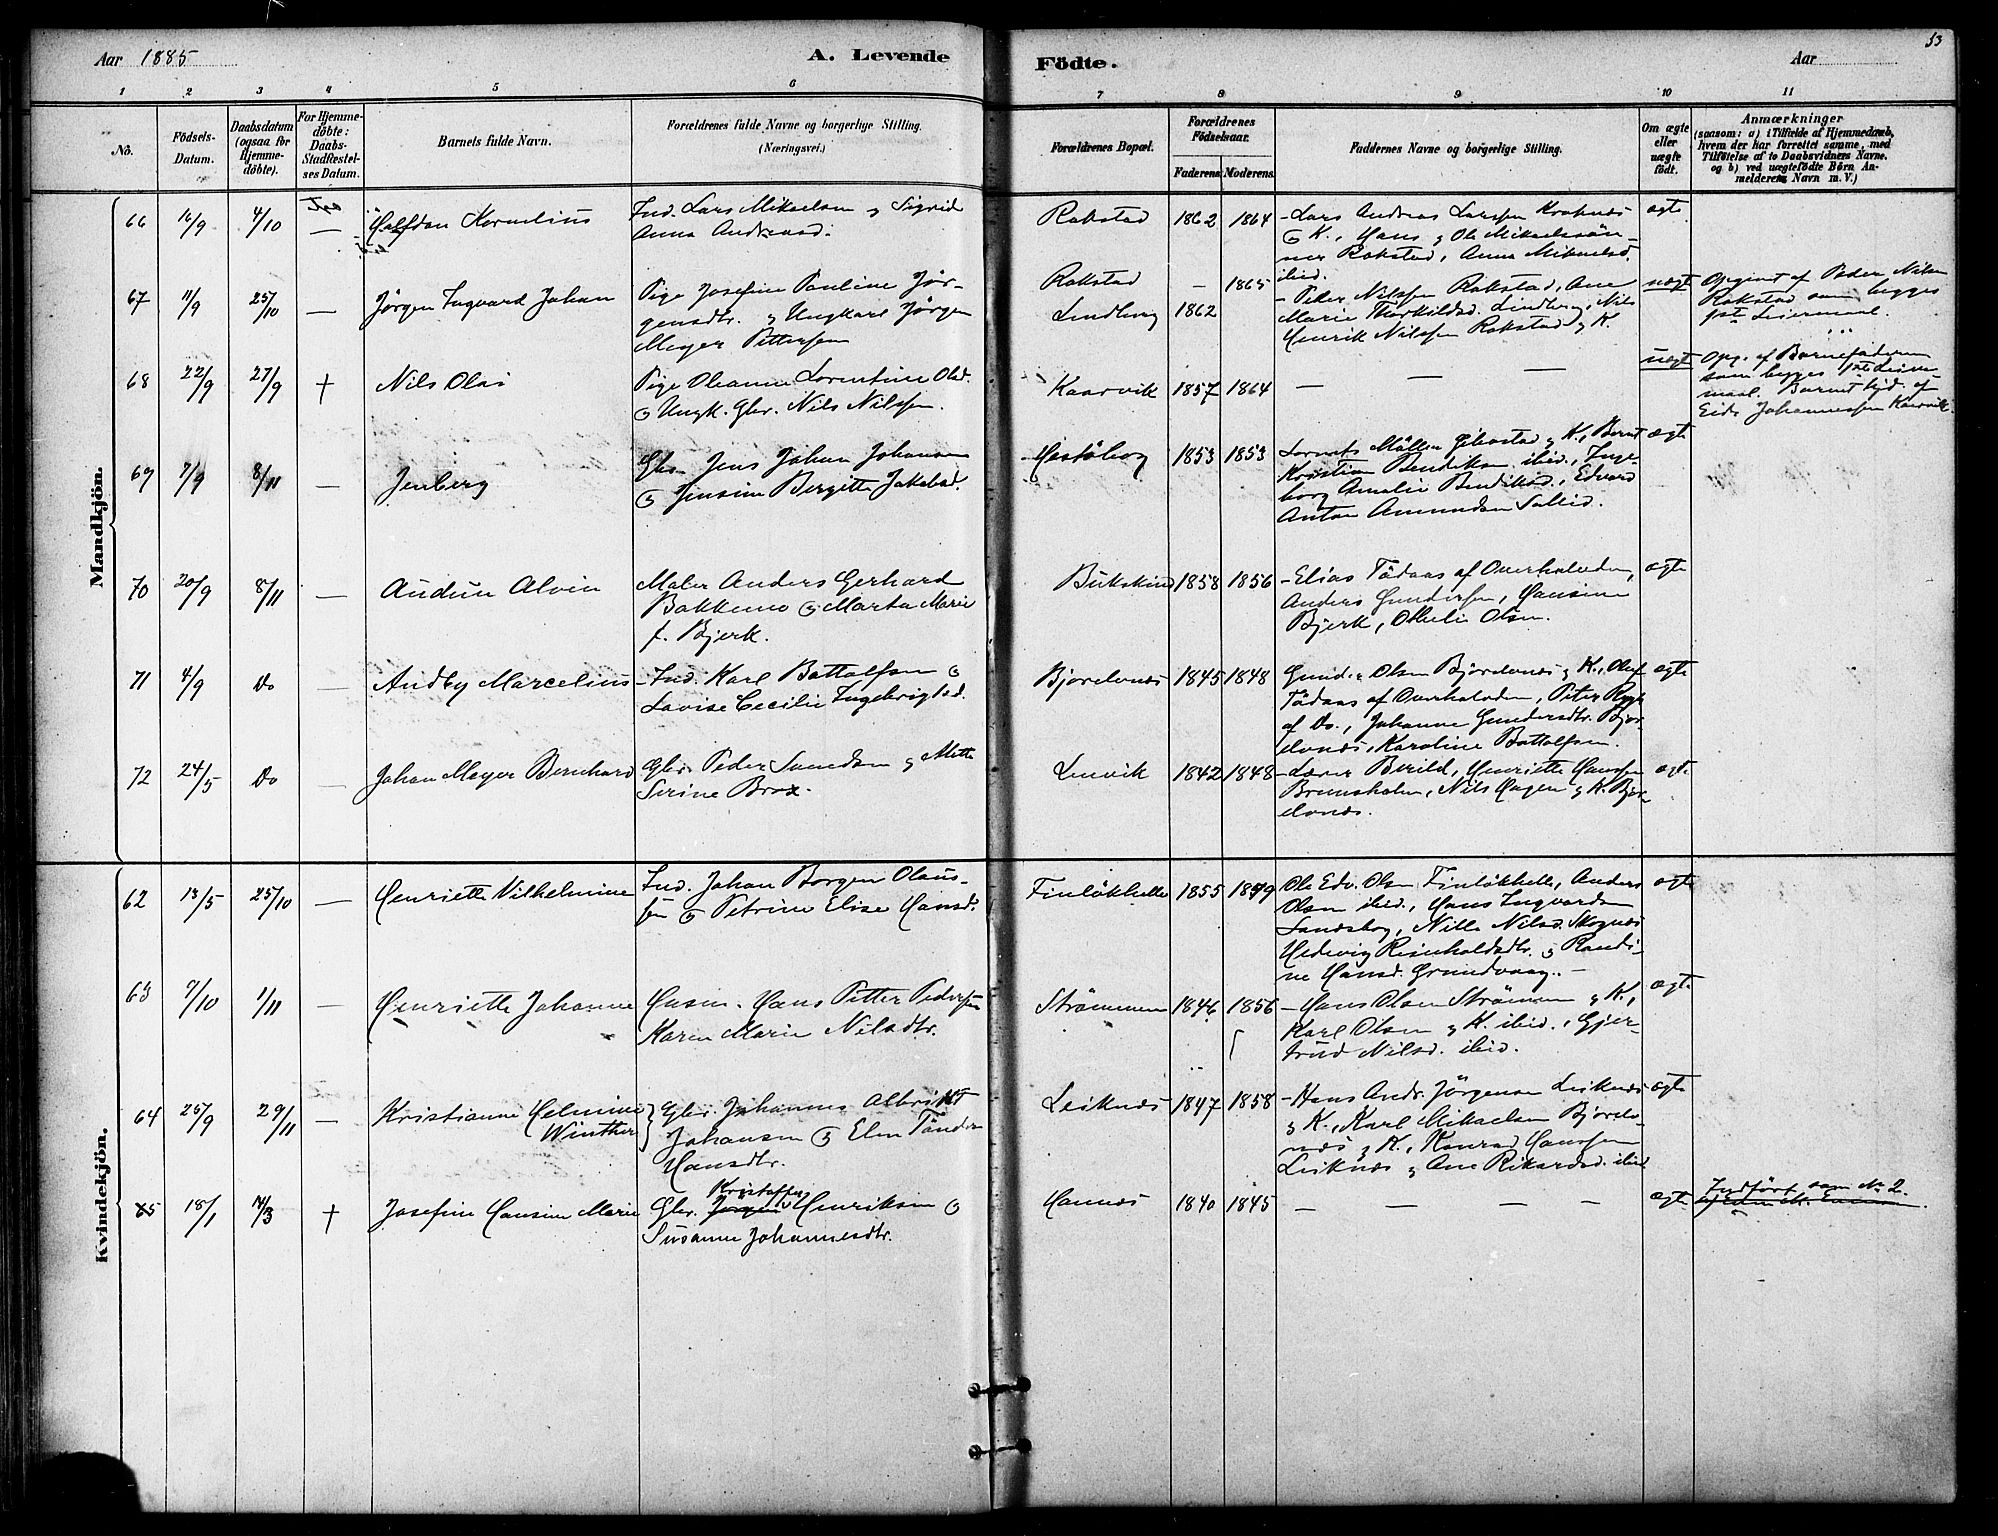 Aar 1885
A. Levende
Födte.
Aar
53
1 2 3 4 5 6 7 8 9 10 11
No.
Födsels-
Datum.
Daabsdatum
(ogsaa for
Hjemme-
döbte).
For Hjemme-
döbte:
Daabs-
Stadfæstel-
ses Datum.
Barnets fulde Navn.
Forældrenes fulde Navne og borgerlige Stilling.
(Næringsvei.)
Forældrenes Bopæl.
Forældrenes
Födselsaar.
Faderens Moderens
Faddernes Navne og borgerlige Stilling.
Om ægte
eller
uægte
födt.
Anmærkninger
(saasom: a) i Tilfælde af Hjemmedaab,
hvem der har forrettet samme, med
Tilföielse af to Daabsvidners Navne.
og b) ved uægtefödte Börn An-
melderens Navn m. V.)
Mandkjön.
66 16/9 4/10 — Halfdan Kornelius
Ind. Lars Mikaelsen og Sigrid
Anna Andreasd.
Rokstad 1862 1864
Lars Andreas Larssen
& K., Hans og Ole Mikaelssön-
ner Rokstad, Anna Mikaelsd.
ibid.
ægte
67 11/9 25/10 — Jörgen Ingvard Johan
Pige Josefine Pauline Jör-
gensdtr. og Ungkarl Jörgen
Meyer Pettersen
Rokstad — 1865
Lindberg 1862
Peder Nilssen Rokstad, Ane
Marie Thorkildsd. Lindberg, Nils
Henrik Nilssen Rokstad og K.
uægte
Opgivet af Peder Nilsen
Rokstad som begges
1ste Leiermaal.
68 22/9 27/9 † Nils Olai
Pige Oleanna Lorentine Olsd.
& Ungk. Gbr. Nils Nilssen.
Kaarvik 1857 1864
— — —
uægte
Opg. af Barnefaderen
som begges 1ste Leier-
maal. Barnet hjd. af
Eide Johannessen Kaarvik.
69 7/9 8/11 — Jenberg
Gbr. Jens Johan Johansen
& Jensine Bergitte Jakobsd.
Gestöbog 1853 1853
Lorents Möller Gibostad og K., Bernt
Kristian Bendiksen ibid., Inge-
borg Amalie Bendiksd., Edvard
Anton Amundsen Sallid.
ægte
70 20/9 8/11 — Audun Alvin
Maler Anders Gerhard
Bakkemo & Marta Marie
f. Bjerk.
Bukskind 1858 1856
Elias Tödaas af Overhalvden,
Anders Gundersen, Hansine
Bjerk, Othelie Olsen.
ægte
71 4/9 Do — Andby Marcelius
Ind. Karl Bottolfsen &
Lovise Cecilie Ingebrigtsd.
Bjorelvnes 1845 1848
Gunder Olsen Bjorelvnes og K., Oluf
Tödaas af Overhalvden, Peter
af Do., Johanna Gundersdtr. Bjor-
elvnes, Karoline Bottolfsen.
ægte
72 24/5 Do — Johan Meyer Bernhard
Gbr. Peder Svendsen og Mette
Serine Brox.
Lenvik 1842 1848
Lærer Berild, Henriette Hanssen
Brensholm, Nils Hagen og K. Bjor-
elvnes.
ægte
Kvindekjön.
62 13/5 25/10 — Henriette Vilhelmine
Ind. Johan Borgen Olaus-
sen & Petrine Elise Hansd.
Finlökhelle 1855 1849
Ole Edv. Olsen Finlökhelle, Anders
Olsen ibid., Hans Ingvardsen
Sandskog, Nille Nilsd. Skognes
Hedevig Reinholdsdtr. & Randi-
ne Hansd. Grundvaag.
ægte
63 9/10 1/11 — Henriette Johanne
Husm. Hans Petter Pedersen
Karen Marie Nilsdtr.
Strömmen 1846 1856
Hans Olsen Strömmen og K.,
Karl Olsen og K. ibid., Gjer-
trud Nilsd. ibid.
ægte
64 25/9 29/11 — Kristianne Helmine
Winther
Gbr. Johannes Albrikt
Johansen & Elen Tönder
Hansdtr.
Leiknes 1847 1858
Hans Andr. Jörgensen Leiknes
og K., Karl Mikaelsen Bjorelv-
nes og K., Konrad Hanssen
Leiknes og Ane Rikardsd. ibid
ægte
65 18/1 /3 † Josefine Hansine Marie
Kristoffer
Gbr. Jörgen Henriksen &
Susanna Johannesdtr.
Hannes 1840 1845
— — — —
ægte
Indfört som No 2.